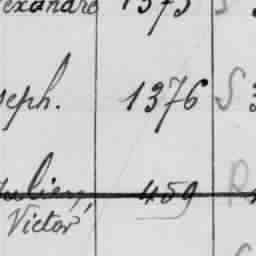 exandre 1375 S
seph. 1376 S 3
Julien, 459 R
Victor